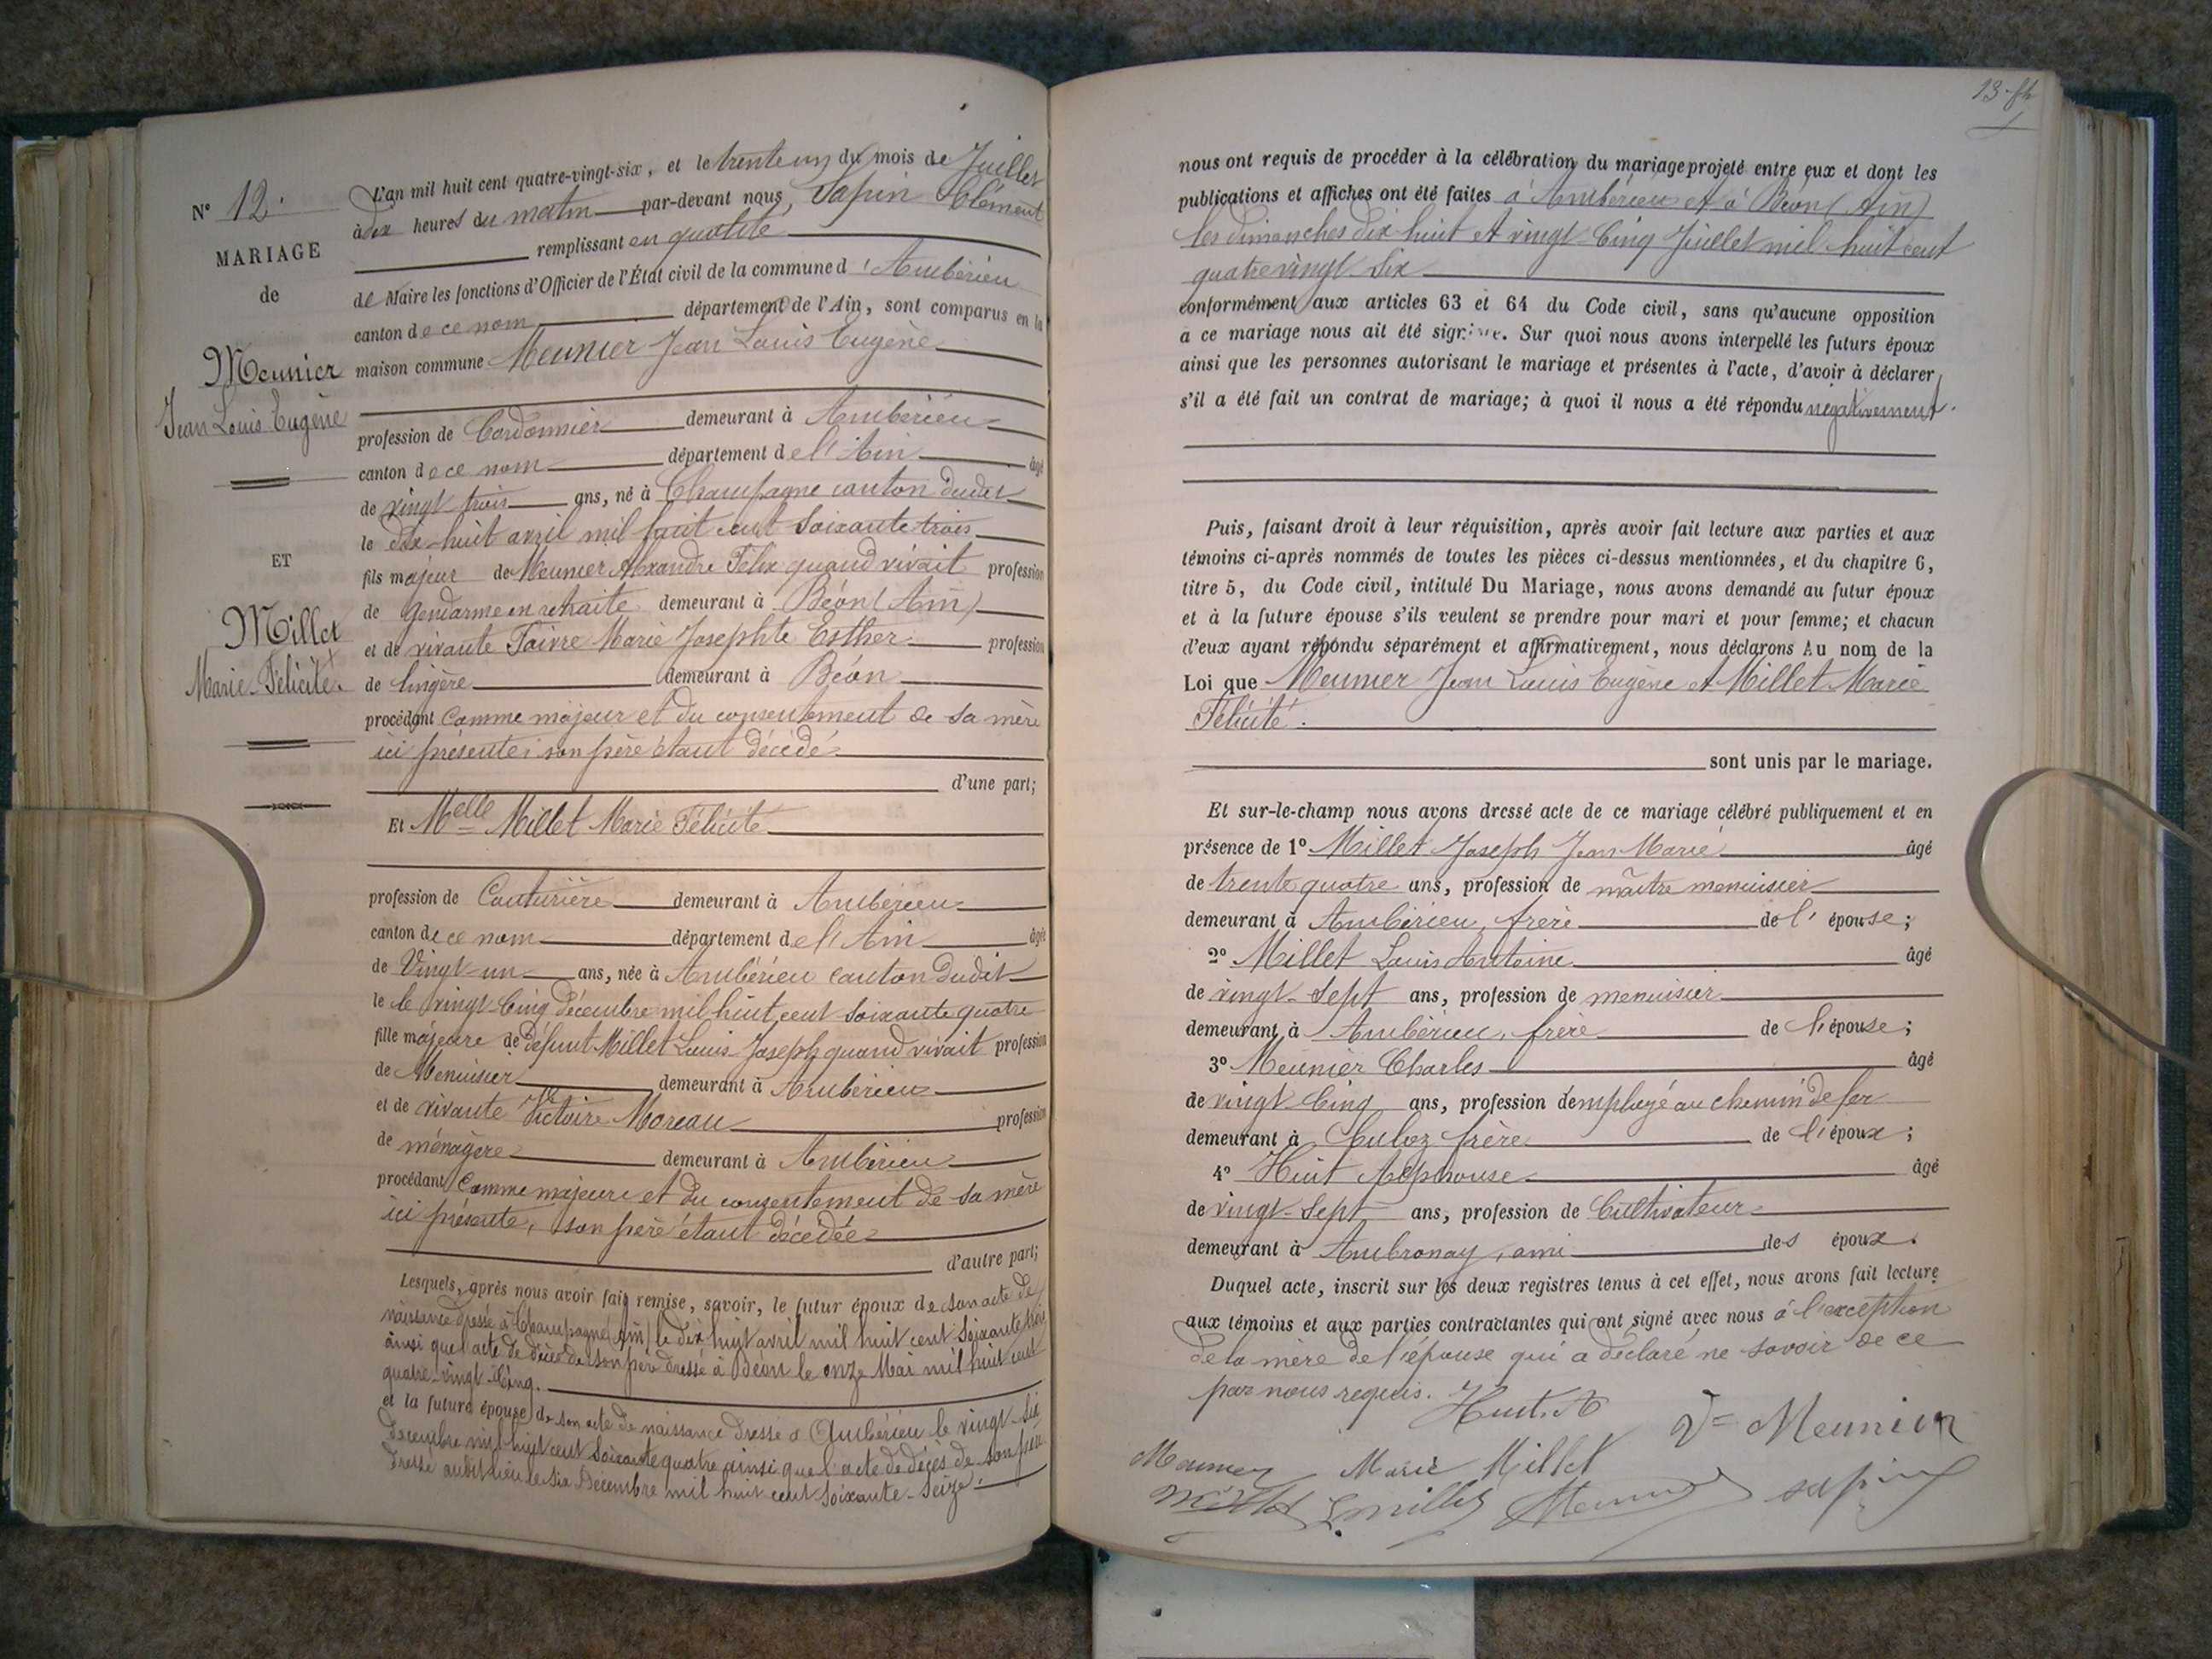 N° 12.
MARIAGE
de
Meunier
Jean Louis Eugène
ET
Millet
Marie Félicité
L'an mil huit cent quatre-vingt-six, et le trente un du mois de Juillet
à dix heures du matin par-devant nous, Sapin Clément
remplissant en qualité
de Maire les fonctions d'Officier de l'État civil de la commune d'Ambérieu
canton de ce nom département de l'Ain, sont comparus en la
maison commune Meunier Jean Louis Eugène
profession de Cordonnier demeurant à Ambérieu
canton de ce nom département de l'Ain âgé
de vingt trois ans, né à Champagne canton dudit
le dix-huit avril mil huit cent soixante trois
fils majeur de Meunier Alexandre Félix quand vivait profession
de Gendarme en retraite demeurant à Béon (Ain)
et de vivante Faivre Marie Josephte Esther profession
de lingère demeurant à Béon
procédant comme majeur et du consentement de sa mère
ici présente; son père étant décédé
d'une part;
Et Melle Millet Marie Félicité
profession de Couturière demeurant à Ambérieu
canton de ce nom département de l'Ain âgée
de Vingt-un ans, née à Ambérieu canton dudit
le le vingt-cinq décembre mil huit cent soixante quatre
fille majeure de défunt Millet Louis Joseph quand vivait profession
de Menuisier demeurant à Ambérieu
et de vivante Victoire Moreau profession
de ménagère demeurant à Ambérieu
procédant comme majeure et du consentement de sa mère
ici présente, son père étant décédée
d'autre part;
Lesquels, après nous avoir fait remise, savoir, le futur époux de son acte de
naissance dressé à Champagne (Ain) le dix huit avril mil huit cent soixante trois
ainsi que l'acte de décès de son père dressé à Béon le onze Mai mil huit cent
quatre-vingt-cinq.
et la future épouse de son acte de naissance dressé à Ambérieu le vingt-six
décembre mil huit cent soixante quatre ainsi que l'acte de décès de son père
dressé audit lieu le six Décembre mil huit cent soixante-seize.
nous ont requis de procéder à la célébration du mariage projeté entre eux et dont les
publications et affiches ont été faites à Ambérieu et à Béon (Ain)
les dimanches dix huit et vingt-cinq Juillet mil huit cent
quatre vingt six
conformément aux articles 63 et 64 du Code civil, sans qu'aucune opposition
a ce mariage nous ait été signifiée. Sur quoi nous avons interpellé les futurs époux
ainsi que les personnes autorisant le mariage et présentes à l'acte, d'avoir à déclarer
s'il a été fait un contrat de mariage; à quoi il nous a été répondu négativement.
Puis, faisant droit à leur réquisition, après avoir fait lecture aux parties et aux
témoins ci-après nommés de toutes les pièces ci-dessus mentionnées, et du chapitre 6,
titre 5, du Code civil, intitulé Du Mariage, nous avons demandé au futur époux
et à la future épouse s'ils veulent se prendre pour mari et pour femme; et chacun
d'eux ayant répondu séparément et affirmativement, nous déclarons Au nom de la
Loi que Meunier Jean Louis Eugène et Millet Marie
Félicité.
sont unis par le mariage.
Et sur-le-champ nous avons dressé acte de ce mariage célébré publiquement et en
présence de 1° Millet Joseph Jean Marie âgé
de trente quatre ans, profession de maître menuisier
demeurant à Ambérieu, frère de l'épouse;
2° Millet Louis Antoine âgé
de vingt-sept ans, profession de menuisier
demeurant à Ambérieu, frère de l'épouse;
3° Meunier Charles âgé
de vingt cinq ans, profession d'employé au chemin de fer
demeurant à Culoz frère de l'époux;
4° Huit Alphonse âgé
de vingt-sept ans, profession de Cultivateur
demeurant à Ambronay, ami des époux.
Duquel acte, inscrit sur les deux registres tenus à cet effet, nous avons fait lecture
aux témoins et aux parties contractantes qui ont signé avec nous à l'exception
de la mère de l'épouse qui a déclaré ne savoir de ce
par nous requis.
Huit. A
Ve Meunier
Meunier Marie Millet
Millet L. Millet Meunier Sapin